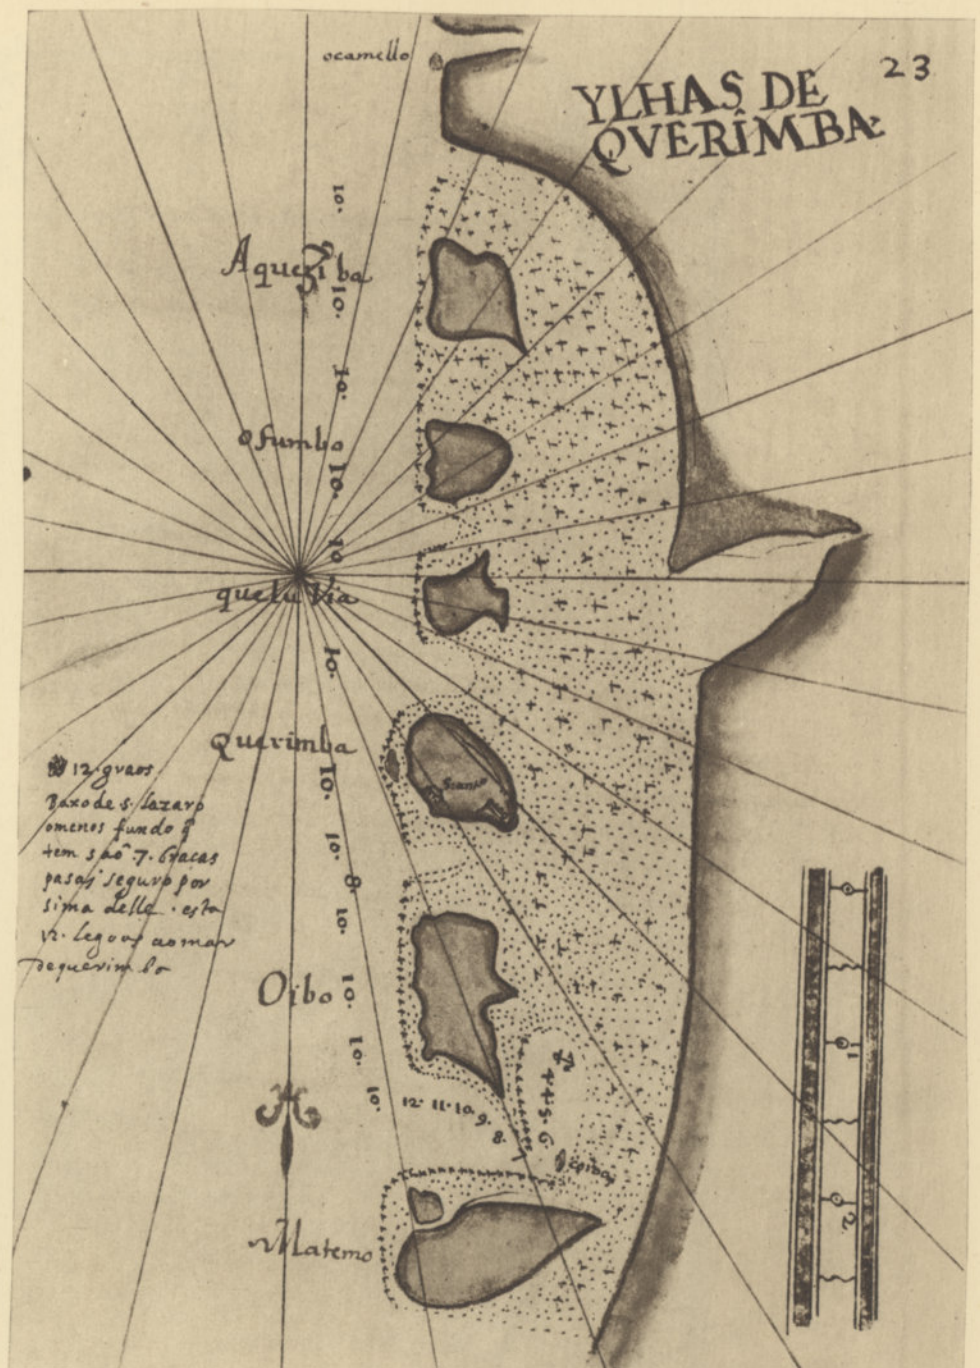 23
YLHAS DE
QVERIMBA:
ocamello
10.
Aqueziba
10.
10.
ofumbo
10.
10
queluVia
10.
Querimba
10.
10.
8.
10.
12. graos
Baxo de s. lazaro
omenos fundo q̃
tem saõ .7. bracas
pasaj seguro por
sima delle . esta
12. legoas ao mar
de querimba
Oibo
10.
10.
10.
12. 11. 10. 9.
8.
7
4. 4. 5. 6.
Matemo
1.
2.